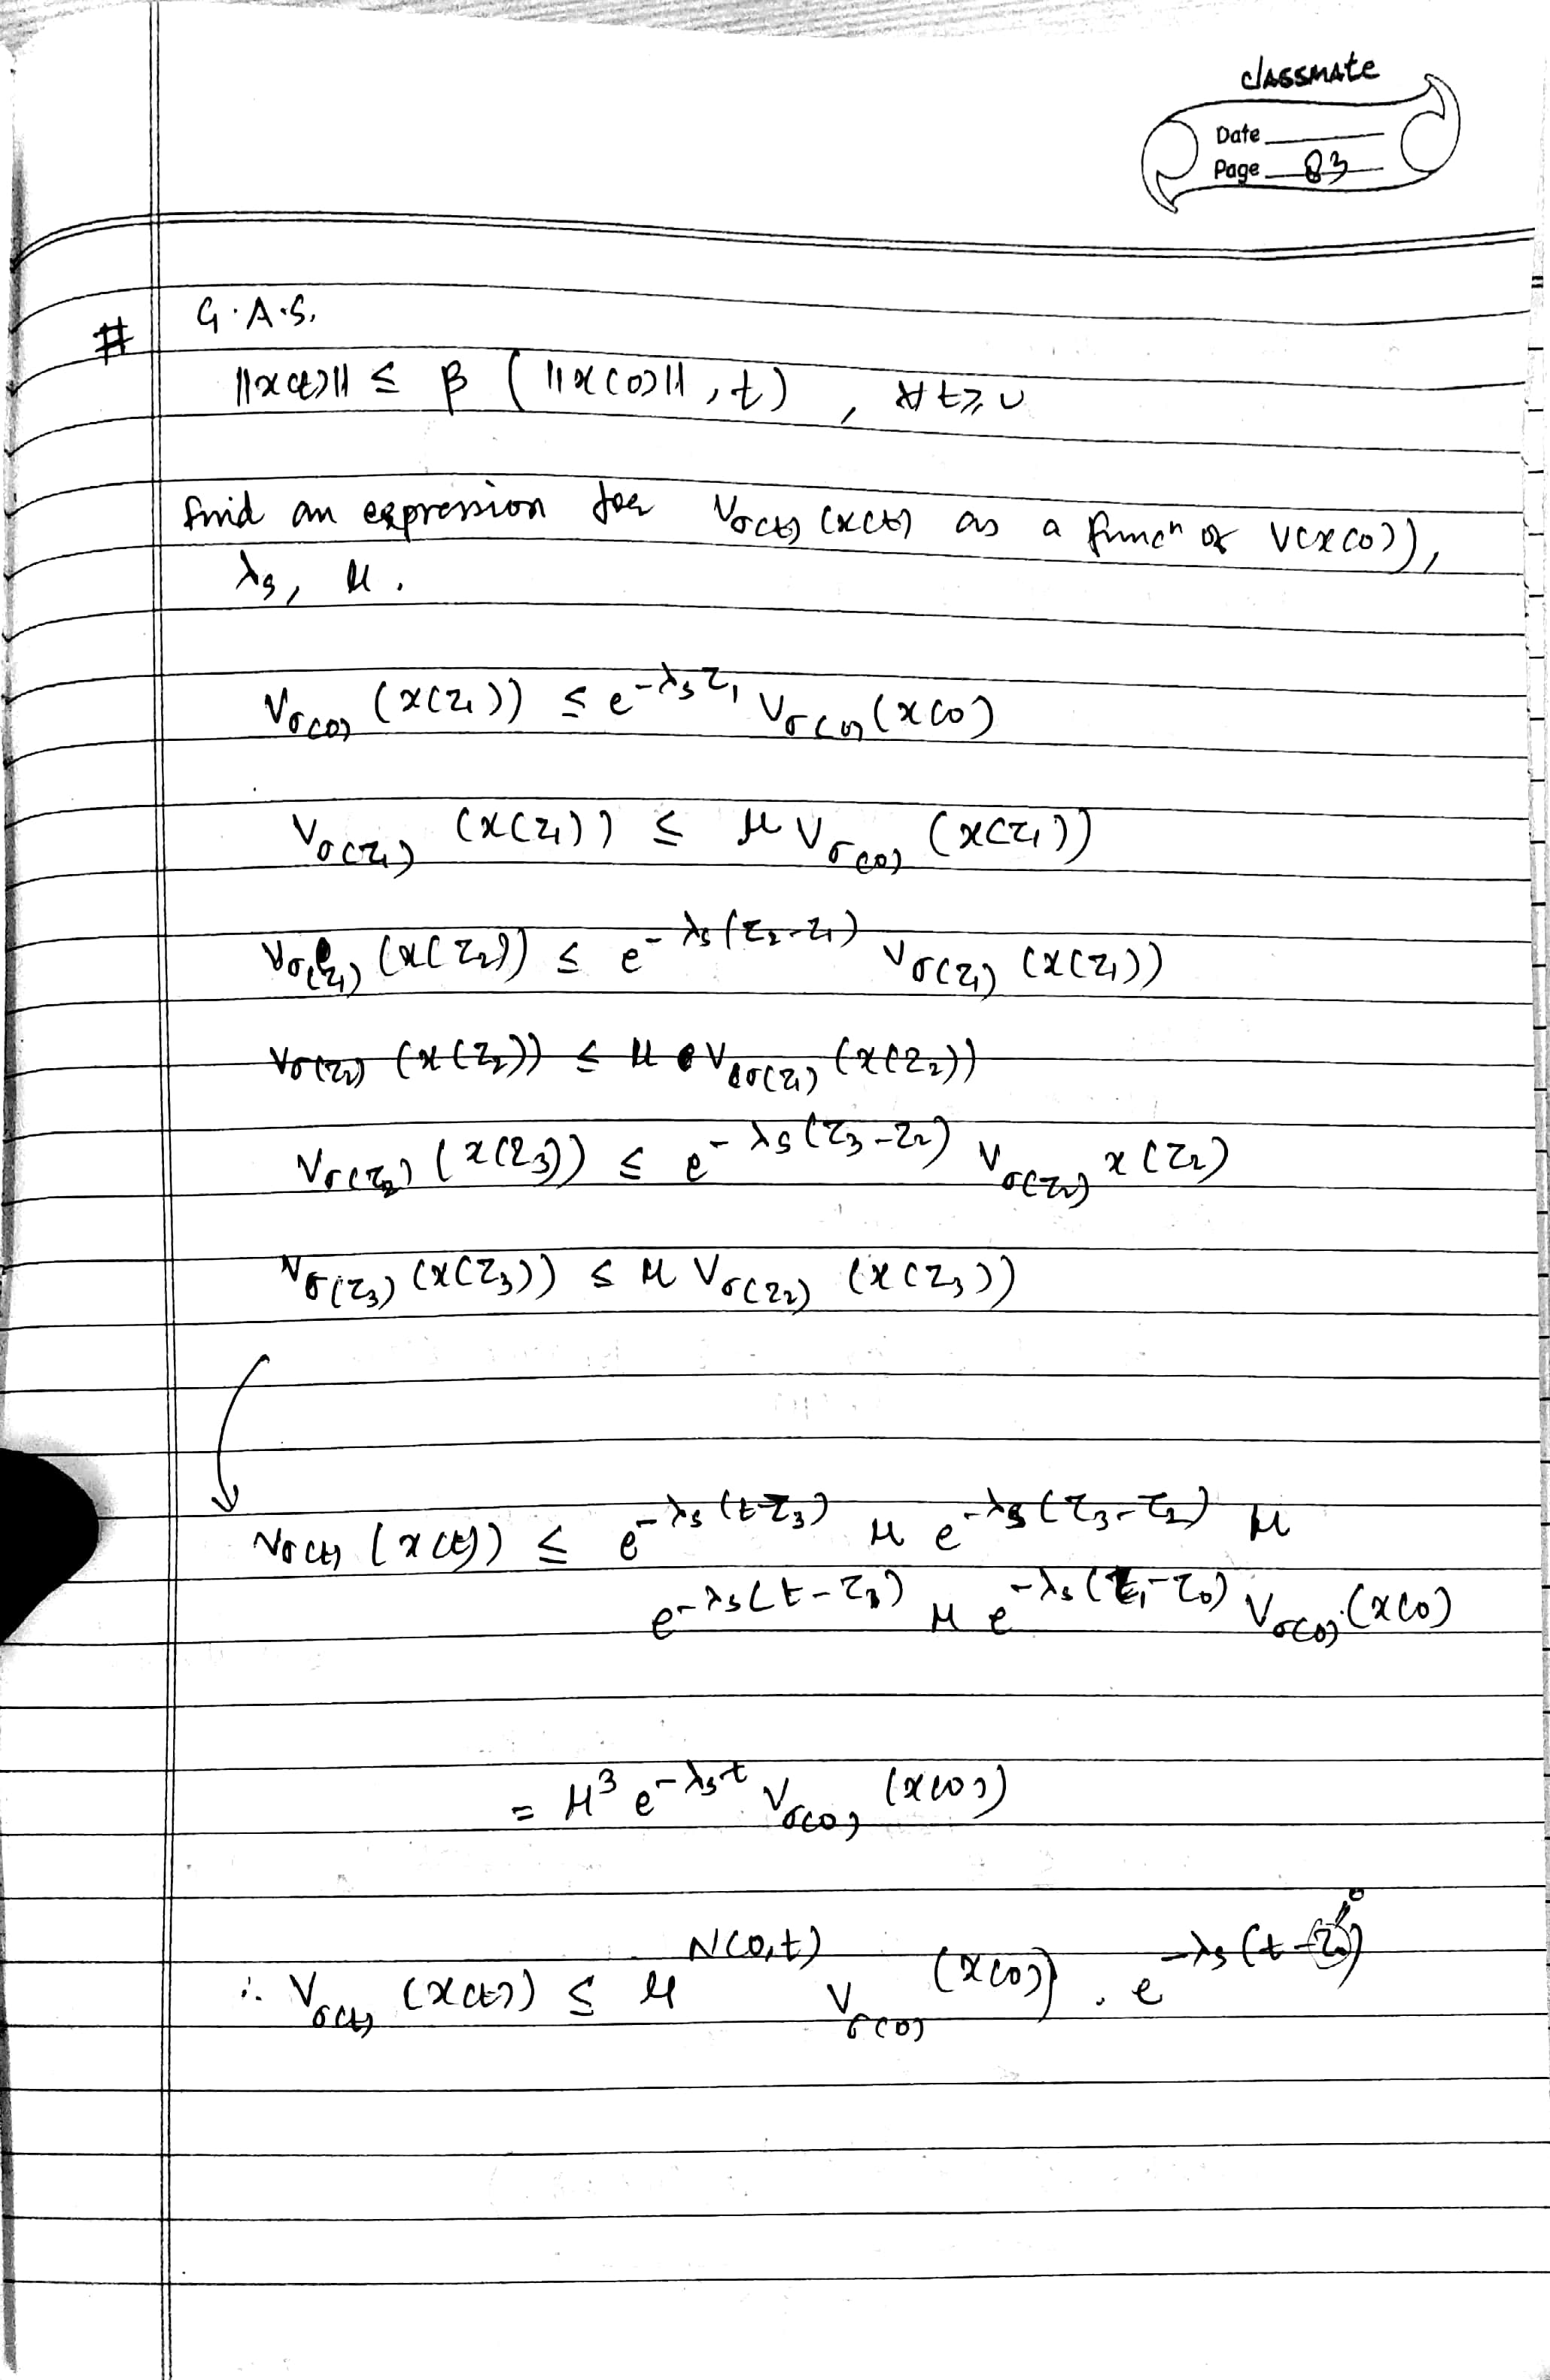 classmate
Date
Page 83
# G.A.S.
||x(t)|| ≤ β ( ||x(0)||, t) , ∀ t ≥ 0
find an expression for V_σ(t) (x(t) as a funcⁿ of V(x(0)),
λ_s, μ.
V_σ(0) (x(τ₁)) ≤ e^{-λ_s τ₁} V_σ(0) (x(0)
V_σ(τ₁) (x(τ₁)) ≤ μ V_σ(0) (x(τ₁))
V_σ(τ₁) (x(τ₂)) ≤ e^{-λ_s(τ₂-τ₁)} V_σ(τ₁) (x(τ₁))
V_σ(τ₂) (x(τ₂)) ≤ μ V_σ(τ₁) (x(τ₂))
V_σ(τ₂) (x(τ₃)) ≤ e^{-λ_s(τ₃-τ₂)} V_σ(τ₂) x(τ₂)
V_σ(τ₃) (x(τ₃)) ≤ μ V_σ(τ₂) (x(τ₃))
V_σ(t) (x(t)) ≤ e^{-λ_s(t-τ₃)} μ e^{-λ_s(τ₃-τ₂)} μ
e^{-λ_s(t-τ₃)} μ e^{-λ_s(τ₁-τ₀)} V_σ(0) (x(0)
= μ³ e^{-λ_s t} V_σ(0) (x(0))
∴ V_σ(t) (x(t)) ≤ μ^{N(0,t)} V_σ(0) (x(0)) . e^{-λ_s(t-τ₀)} 0